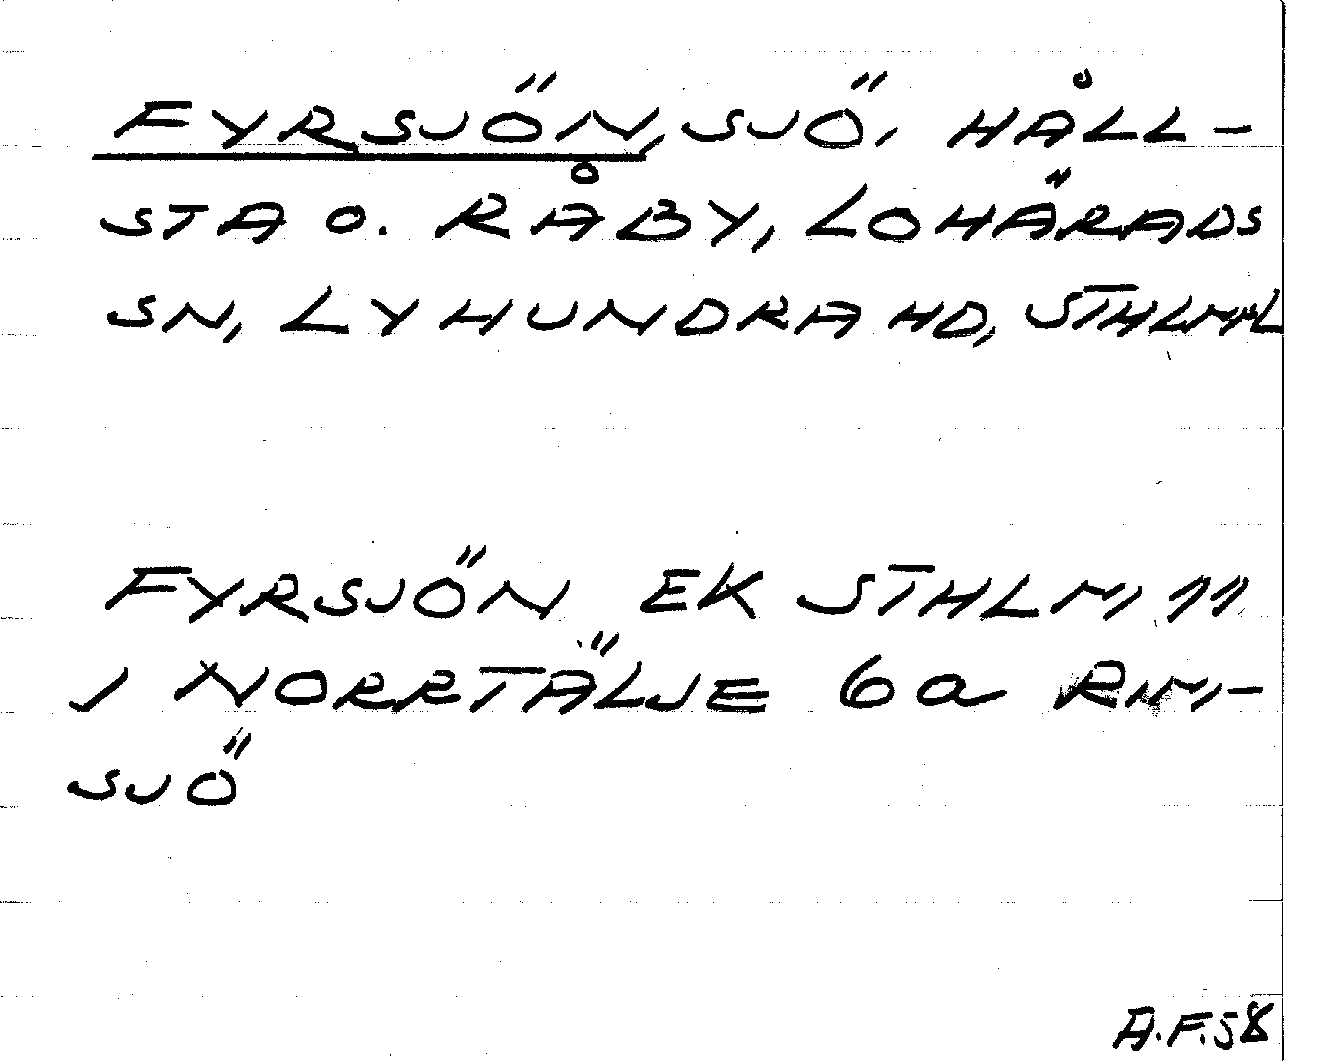 FYRSJÖN, SJÖ, HÅLL-
STA O. RÅBY, LOHÄRADS
SN, LYHUNDRA HD, STHLM L
FYRSJÖN EK STHLM 11
J NORRTÄLJE 6a RIM-
SJÖ
A.F.58